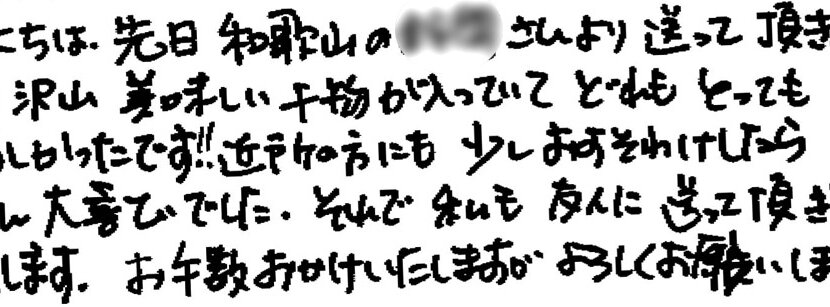 こちは、先日和歌山の さんより送って頂き
沢山美味しい干物が入っていてどれもとっても
いしかったです!!近所の方にも少しおすそわけしたら
ん大喜びでした。それで私も友人に送って頂き
します。お手数おかけいたしますがよろしくお願いしま